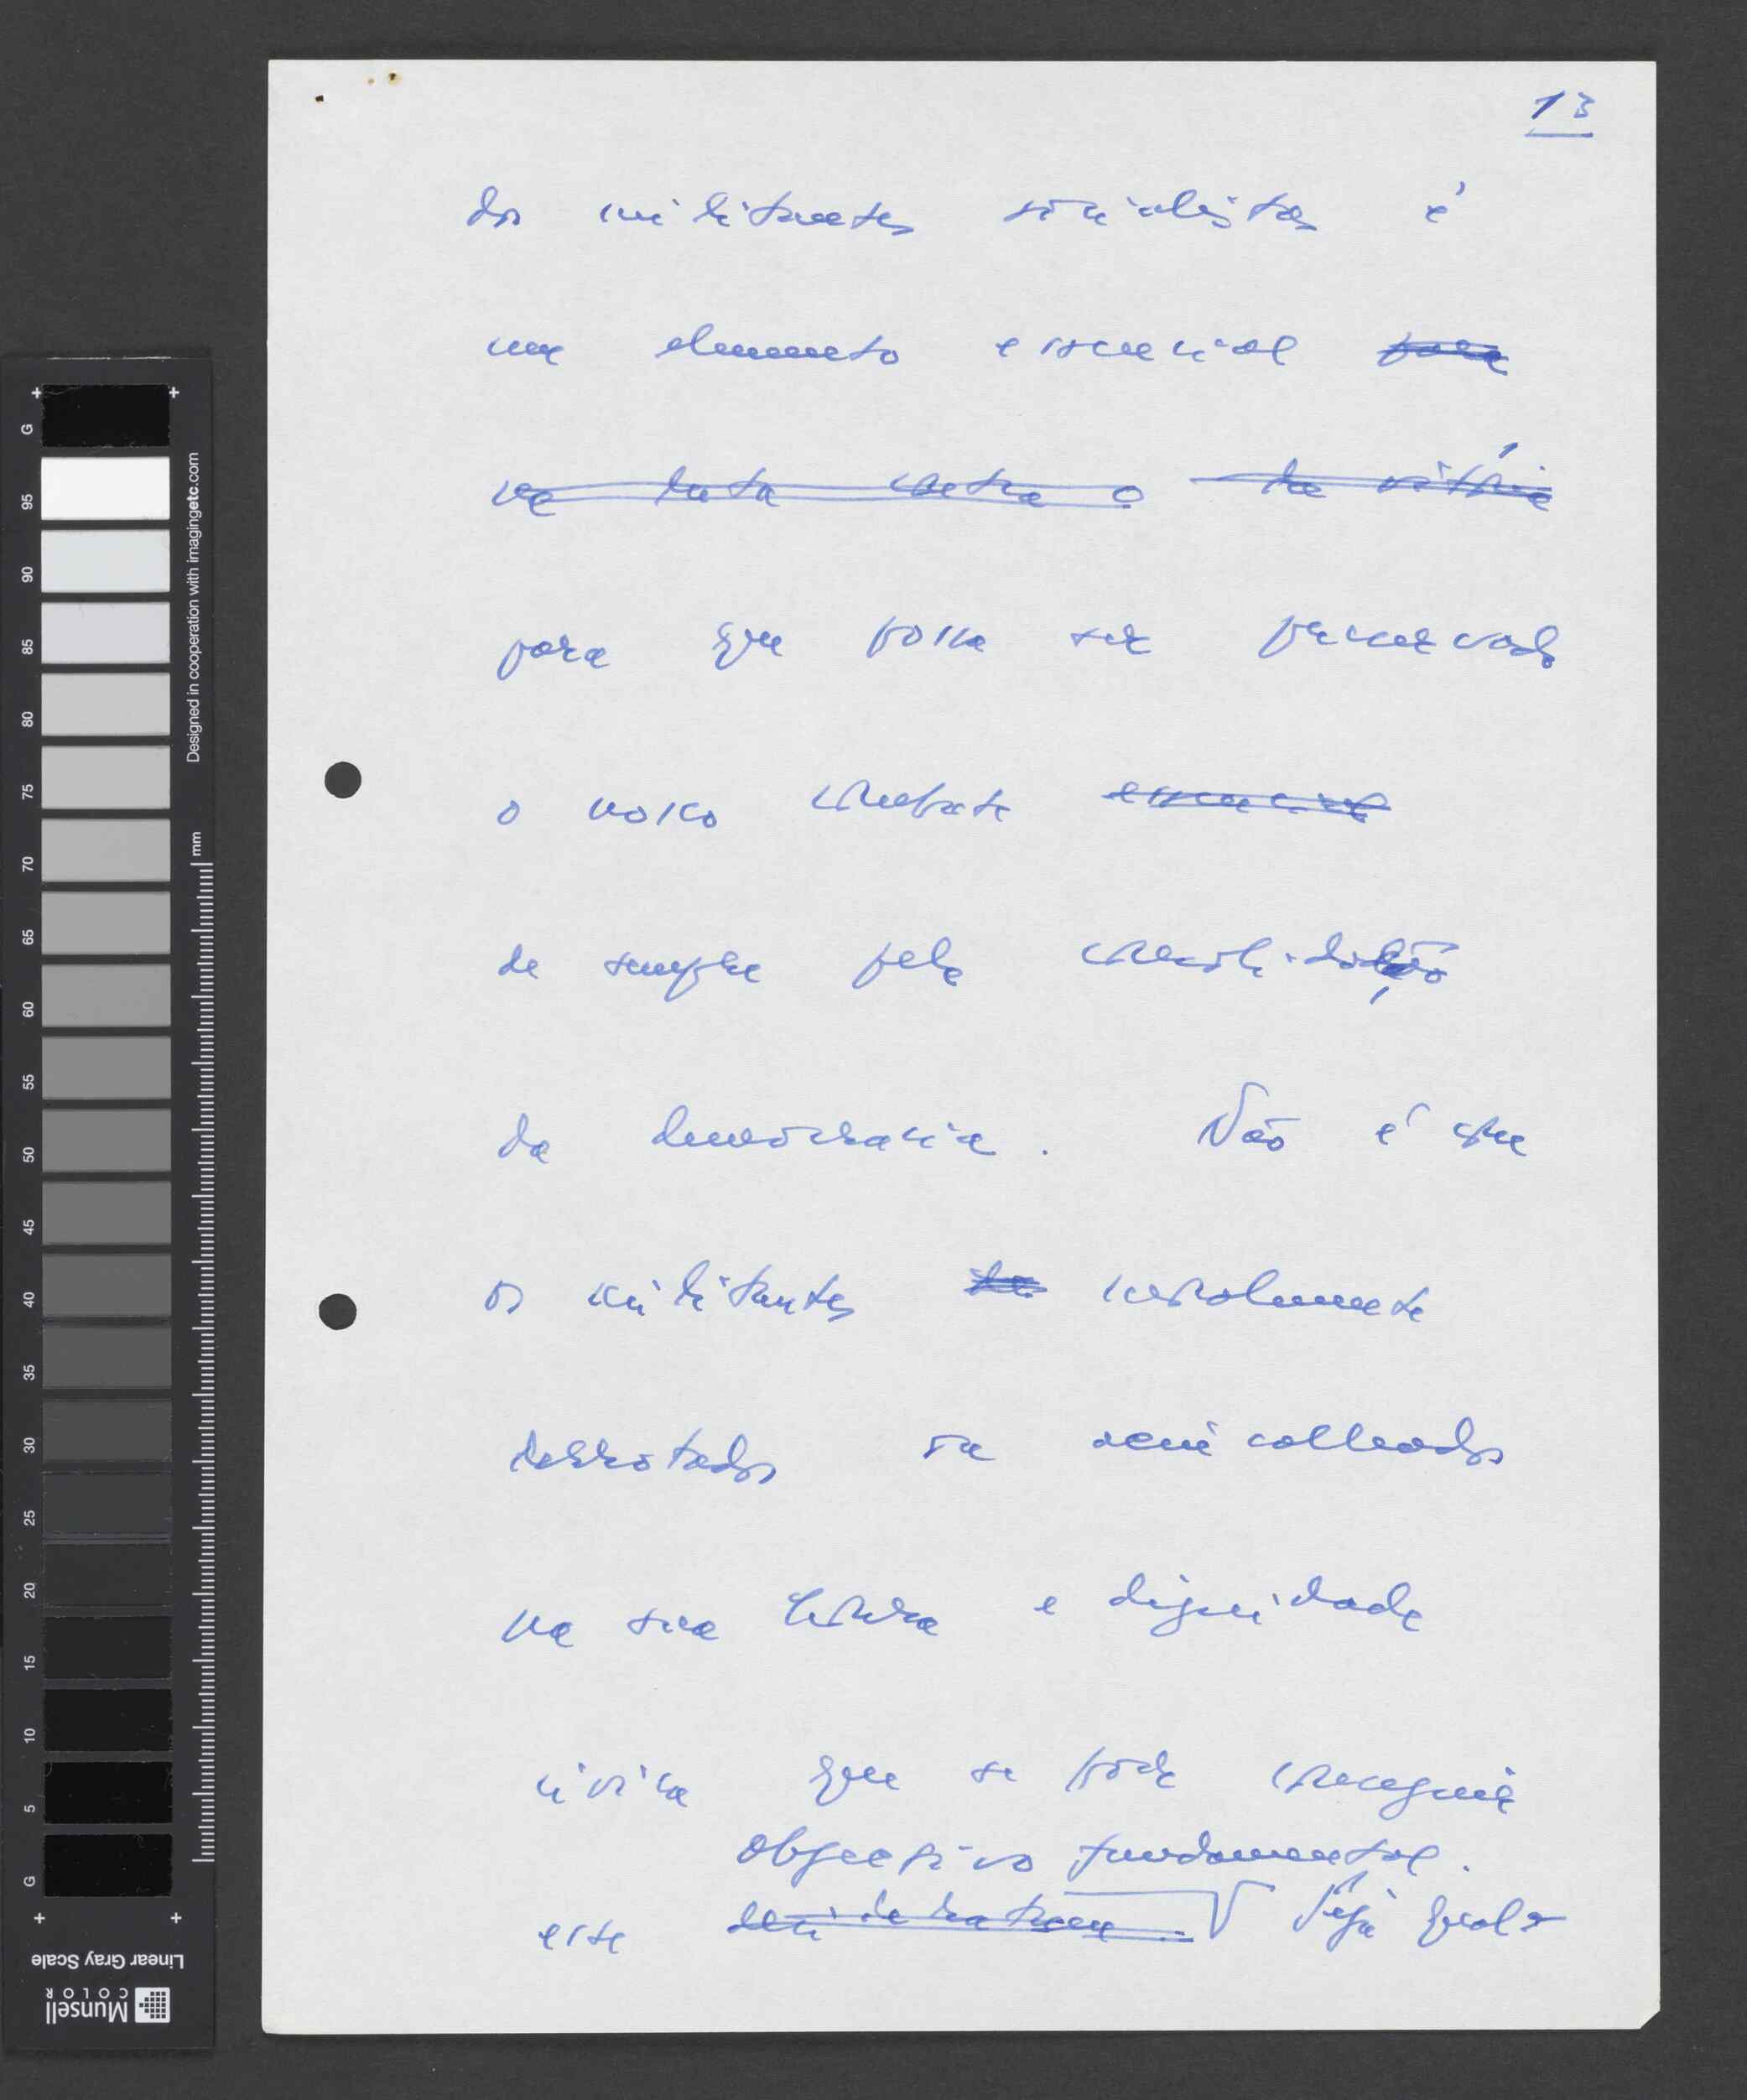 13
dos militantes socialistas é
um elemento essencial para
na luta contra o da vitória
para que possa ser preservado
o nosso combate essencial
de sempre pela consolidação
da democracia. Não é com
os militantes moralmente
derrotados ou amicalhados
na sua honra e dignidade
cívica que se pode conseguir
objectivo fundamental.
este desideratum. Seja qual
G
95
90
85
80
75
70
65
60
55
50
45
40
35
30
25
20
15
10
5
G
Designed in cooperation with imagingetc.com
mm
Linear Gray Scale
Munsell
COLOR